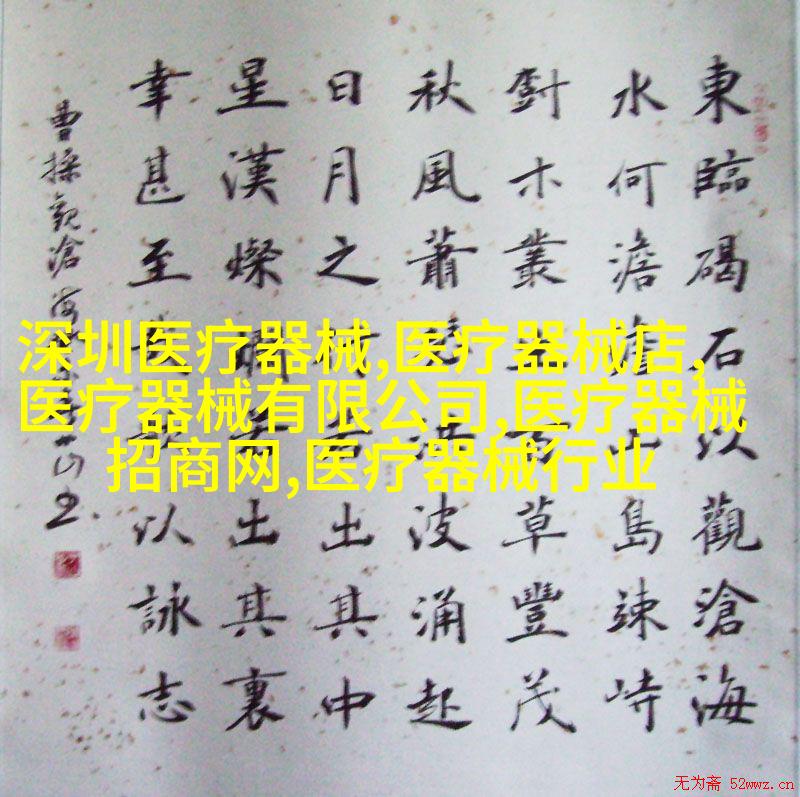 東臨碣石以觀滄海
水何澹澹山島竦峙
木叢生百草豐茂
秋風蕭瑟洪波涌起
日月之行若出其中
星漢燦爛若出其裏
幸甚至哉歌以詠志
曹操觀滄海
深圳医疗器械,医疗器械店,
医疗器械有限公司,医疗器械
招商网,医疗器械行业
无为斋 52wwz.cn